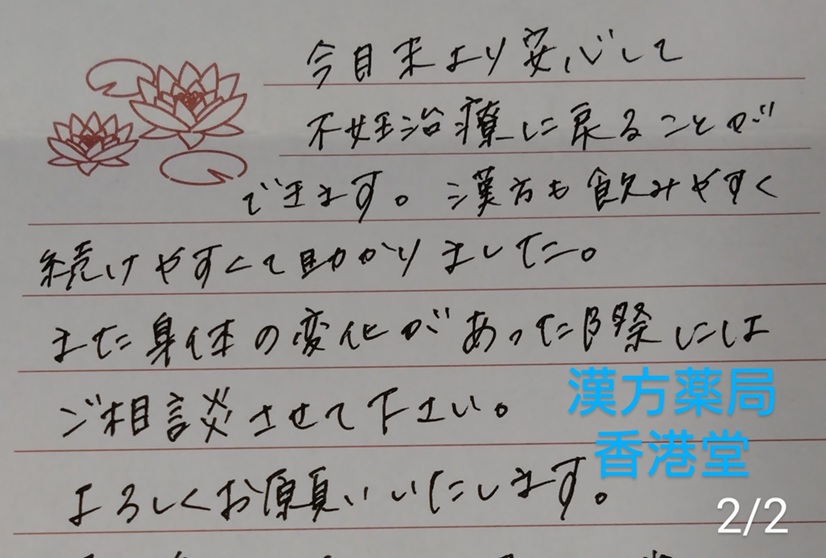 今月末より安心して
不妊治療に戻ることが
できます。漢方も飲みやすく
続けやすくて助かりました。
また身体の変化があった際には
ご相談させて下さい。
よろしくお願いいたします。
漢方薬局
香港堂
2/2